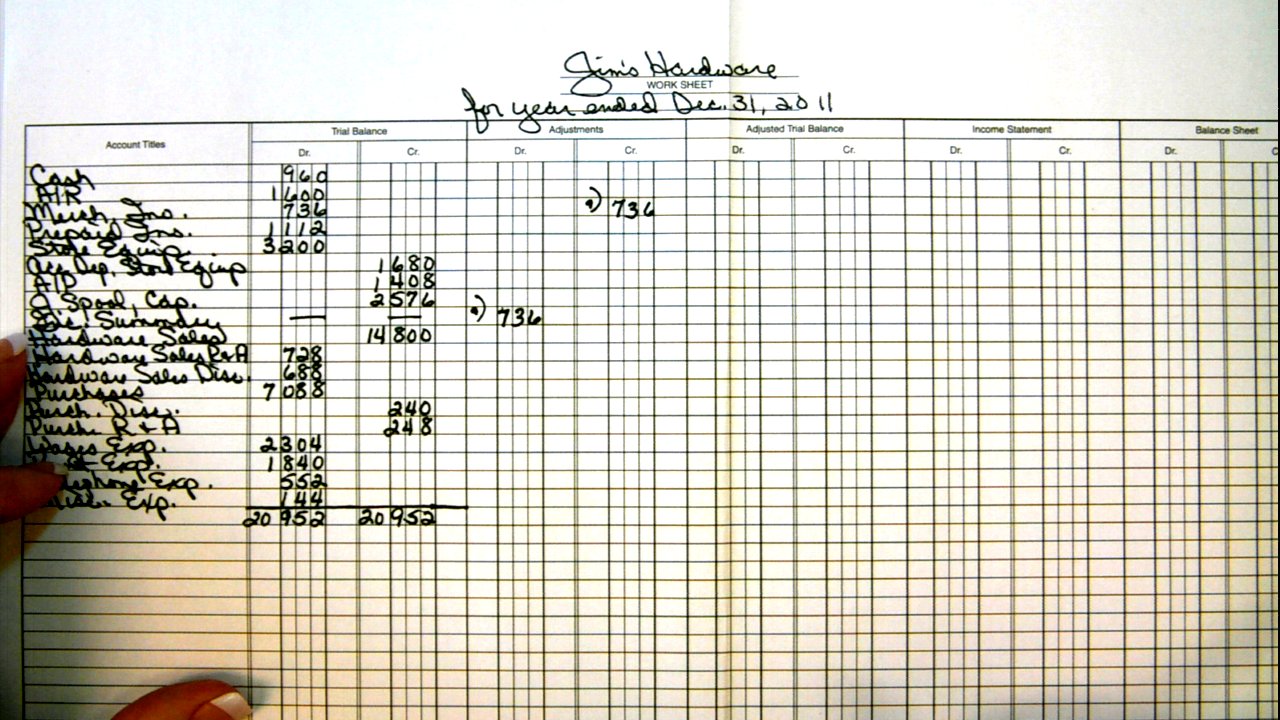 Jim's Hardware
WORK SHEET
for year ended Dec. 31, 2011
Account Titles Trial Balance Adjustments Adjusted Trial Balance Income Statement Balance Sheet
Dr. Cr. Dr. Cr. Dr. Cr. Dr. Cr. Dr. C
Cash 960
A/R 1600
Merch. Inv. 736 a) 736
Prepaid Ins. 1112
Store Equip. 3200
Acc. Dep. Store Equip 1680
A/P 1408
J. Spool, Cap. 2576
Inc. Summary — — a) 736
Hardware Sales 14800
Hardware Sales R&A 728
Hardware Sales Disc. 688
Purchases 7088
Purch. Disc. 240
Purch. R&A 248
Wages Exp. 2304
Exp. 1840
Exp. 552
Exp. 144
20952 20952